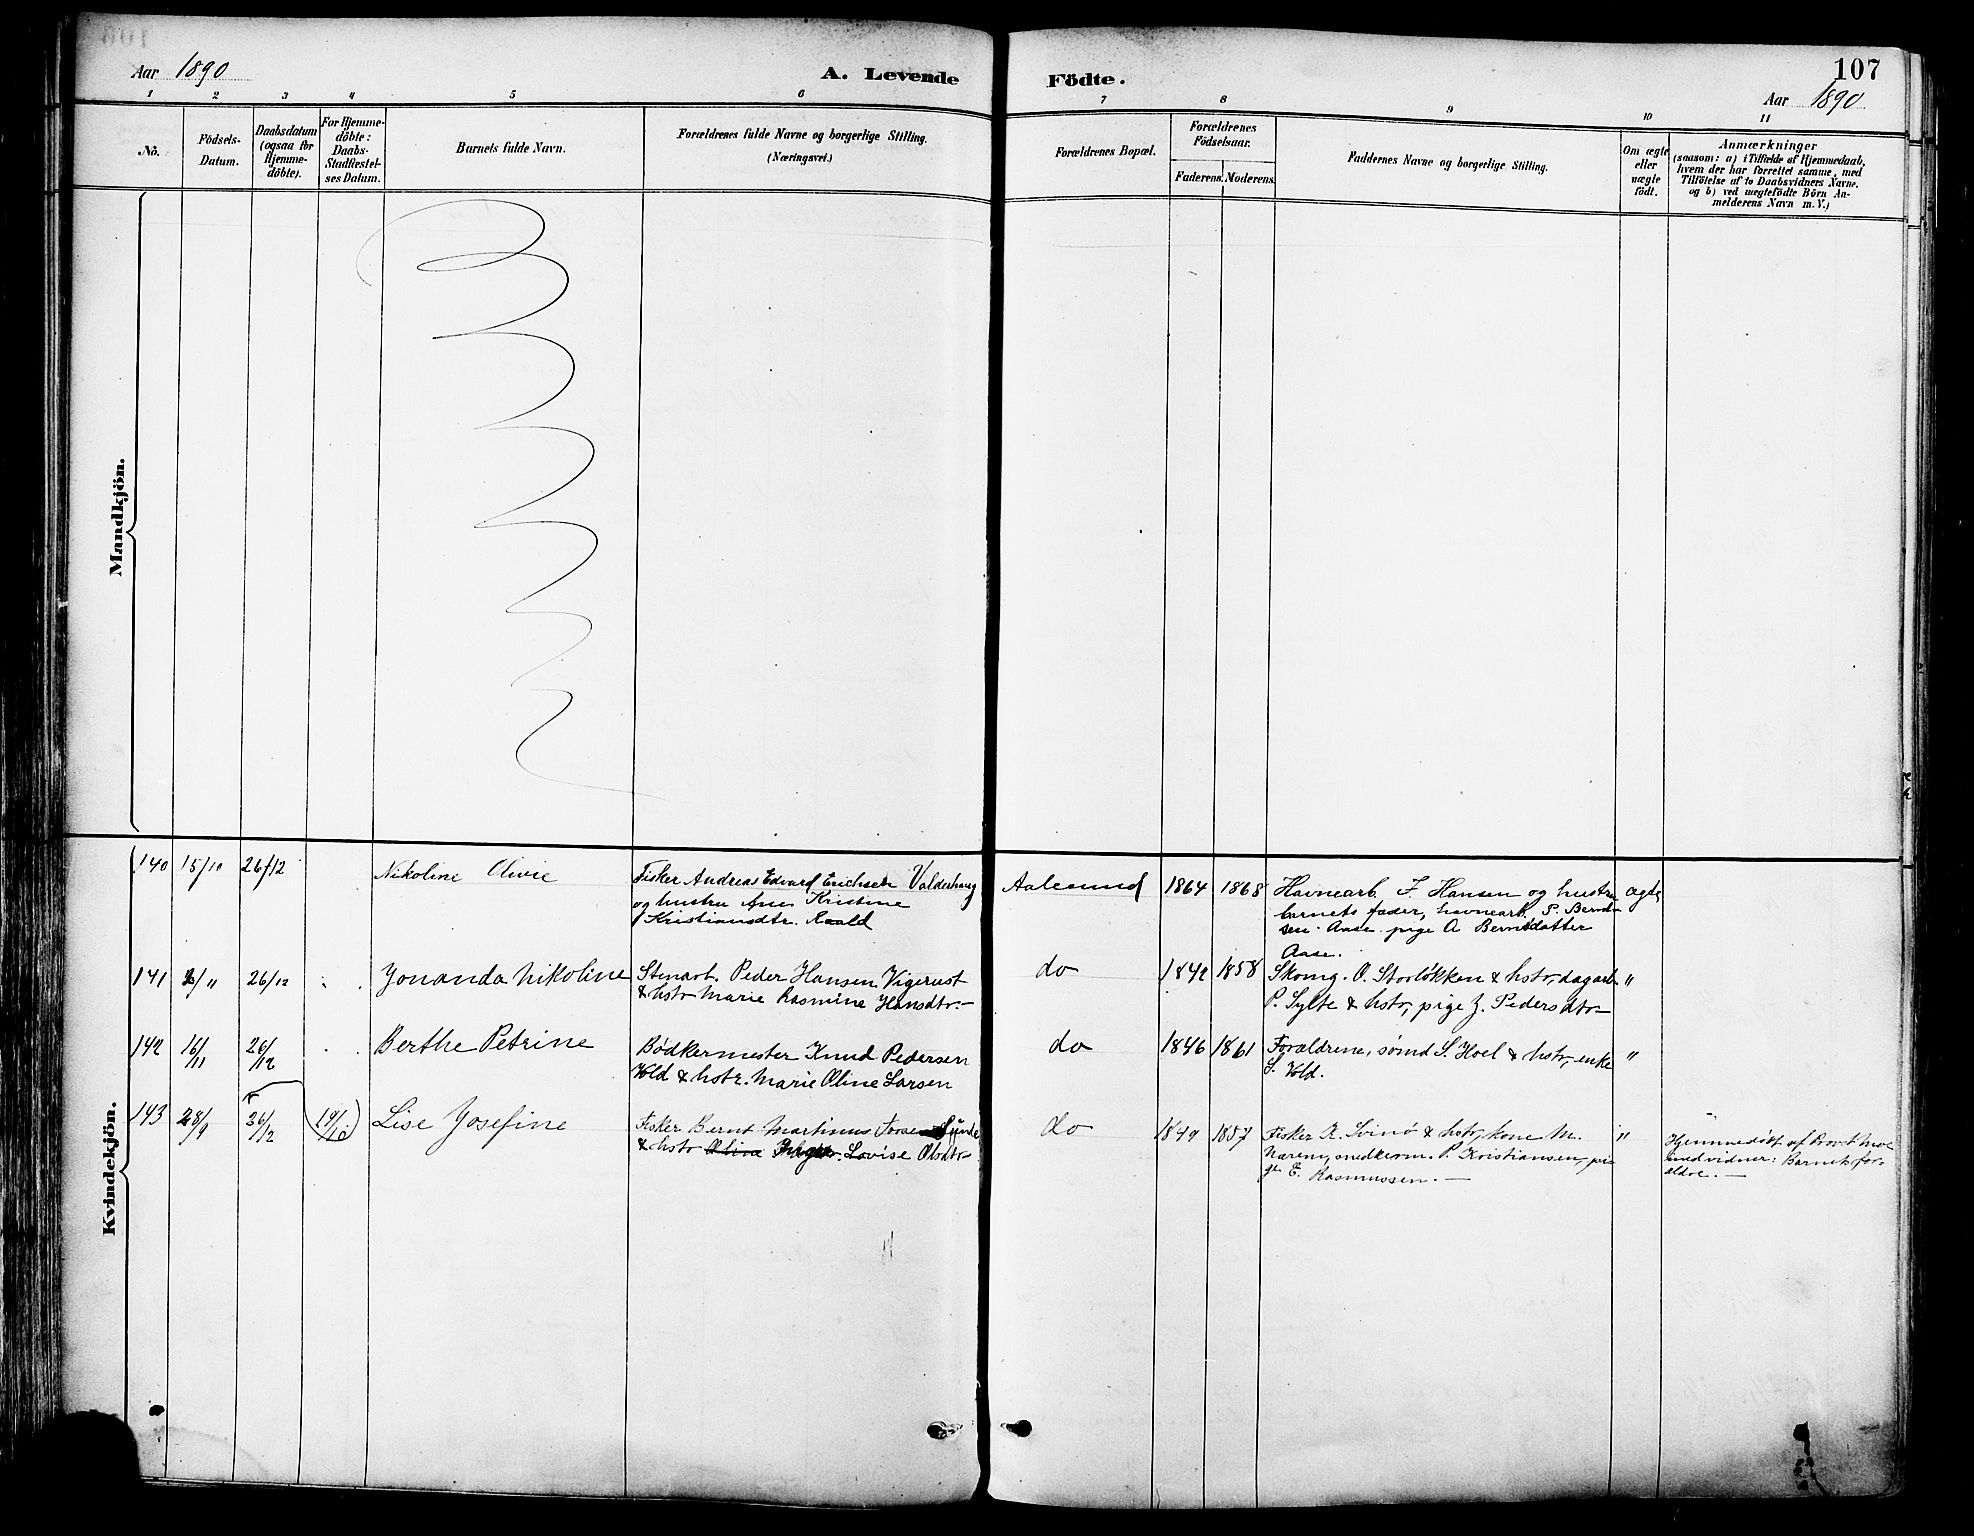 Aar 1890
A. Levende
Födte.
107
Aar 1890
1 2 3 4 5 6 7 8 9 10 11
No.
Födsels-
Datum.
Daabsdatum
(ogsaa for
Hjemme-
döbte).
For Hjemme-
döbte:
Daabs-
Stadfæstel-
ses Datum.
Barnets fulde Navn.
Forældrenes fulde Navne og borgerlige Stilling.
(Næringsvei.)
Forældrenes Bopæl.
Forældrenes
Födselsaar.
Faderens. Moderens.
Faddernes Navne og borgerlige Stilling.
Om ægte
eller
uægte
födt.
Anmærkninger
(saasom: a) i Tilfælde af Hjemmedaab,
hvem der har forrettet samme, med
Tilföielse af to Daabsvidners Navne,
og b) ved uegtefödte Börn An-
melderens Navn m. V.)
Mandkjön.
Kvindekjön.
140 15/10 26/12
Nikoline Olivie
Fisker Andreas Edvard Erichsen Valderhaug
og hustru Ane Kristine
Kristiansdtr. Roald
Aalesund
1864 1868
Havnearb. F. Hansen og hustru
barnets fader, havnearb. P. Bernd-
sen Aase pige A Berntsdatter
Aase.
ægte
141 26/12
Jonanda Nikoline
Stenarb. Peder Hansen Vigerust
& hstr Marie Rasmine Hansdtr.-
do
1842 1858
Skomg. O. Storløkken & hstr, dagarb
P. Sylte & hstr, pige J. Pedersdtr
"
142 16/11 26/12
Berthe Petrine
Bødkermester Knud Pedersen
Vold & hstr. Marie Oline Larsen
do
1846 1861
Forældrene, sømd S. Hoel & hstr, enke
S. Vold.
"
143 28/9 26/12 (19/10)
Lise Josefine
Fisker Bernt Martinus
& hstr Olina Lovise Olsdtr
do
1849 1857
Fisker K. Svinø & hstr, kone M.
Nærem, snedkerm. P. Kristiansen, pi-
ge E. Rasmussen. -
"
Hjemmedøbt af Provst Moe
med vidner: Barnets for-
ældre. -